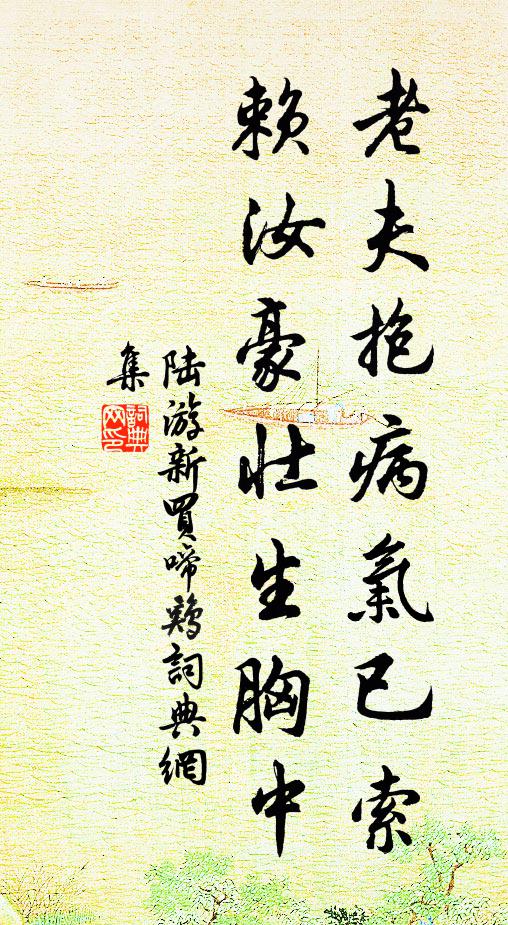 老夫抱病氣已索
賴汝豪壯生胸中
陆游新買啼鷄詞典網
集
詞典网印